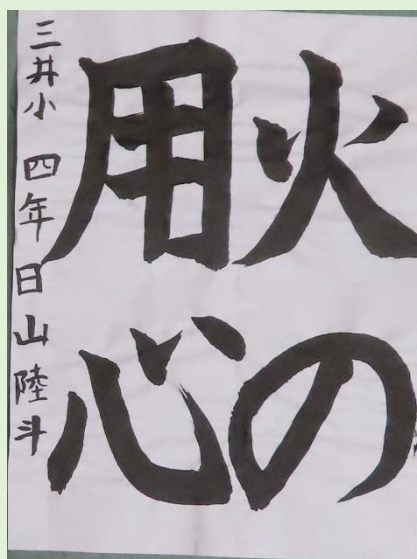 火の
用心
三井小 四年 日山陸斗